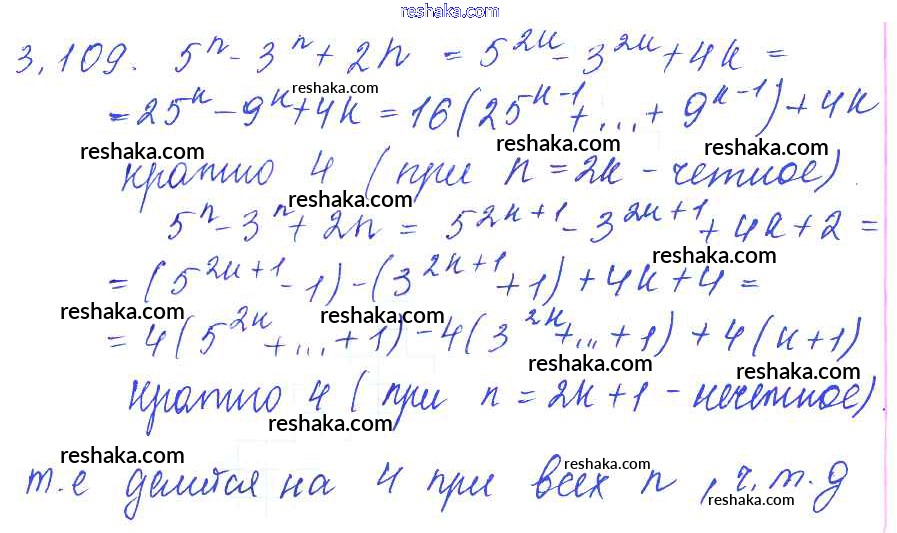 reshaka.com
3.109. 5^n - 3^n + 2n = 5^{2k} - 3^{2k} + 4k =
reshaka.com
= 25^k - 9^k + 4k = 16(25^{k-1} + ... + 9^{k-1}) + 4k
reshaka.com reshaka.com reshaka.com
кратно 4 (при n = 2k - четное).
reshaka.com
5^n - 3^n + 2n = 5^{2k+1} - 3^{2k+1} + 4k + 2 =
reshaka.com
= (5^{2k+1} - 1) - (3^{2k+1} + 1) + 4k + 4 =
reshaka.com reshaka.com reshaka.com
= 4(5^{2k} + ... + 1) - 4(3^{2k} + .. + 1) + 4(k+1)
reshaka.com reshaka.com
кратно 4 (при n = 2k+1 - нечетное).
reshaka.com
reshaka.com reshaka.com
т.е делится на 4 при всех n, ч.т.д
reshaka.com reshaka.com